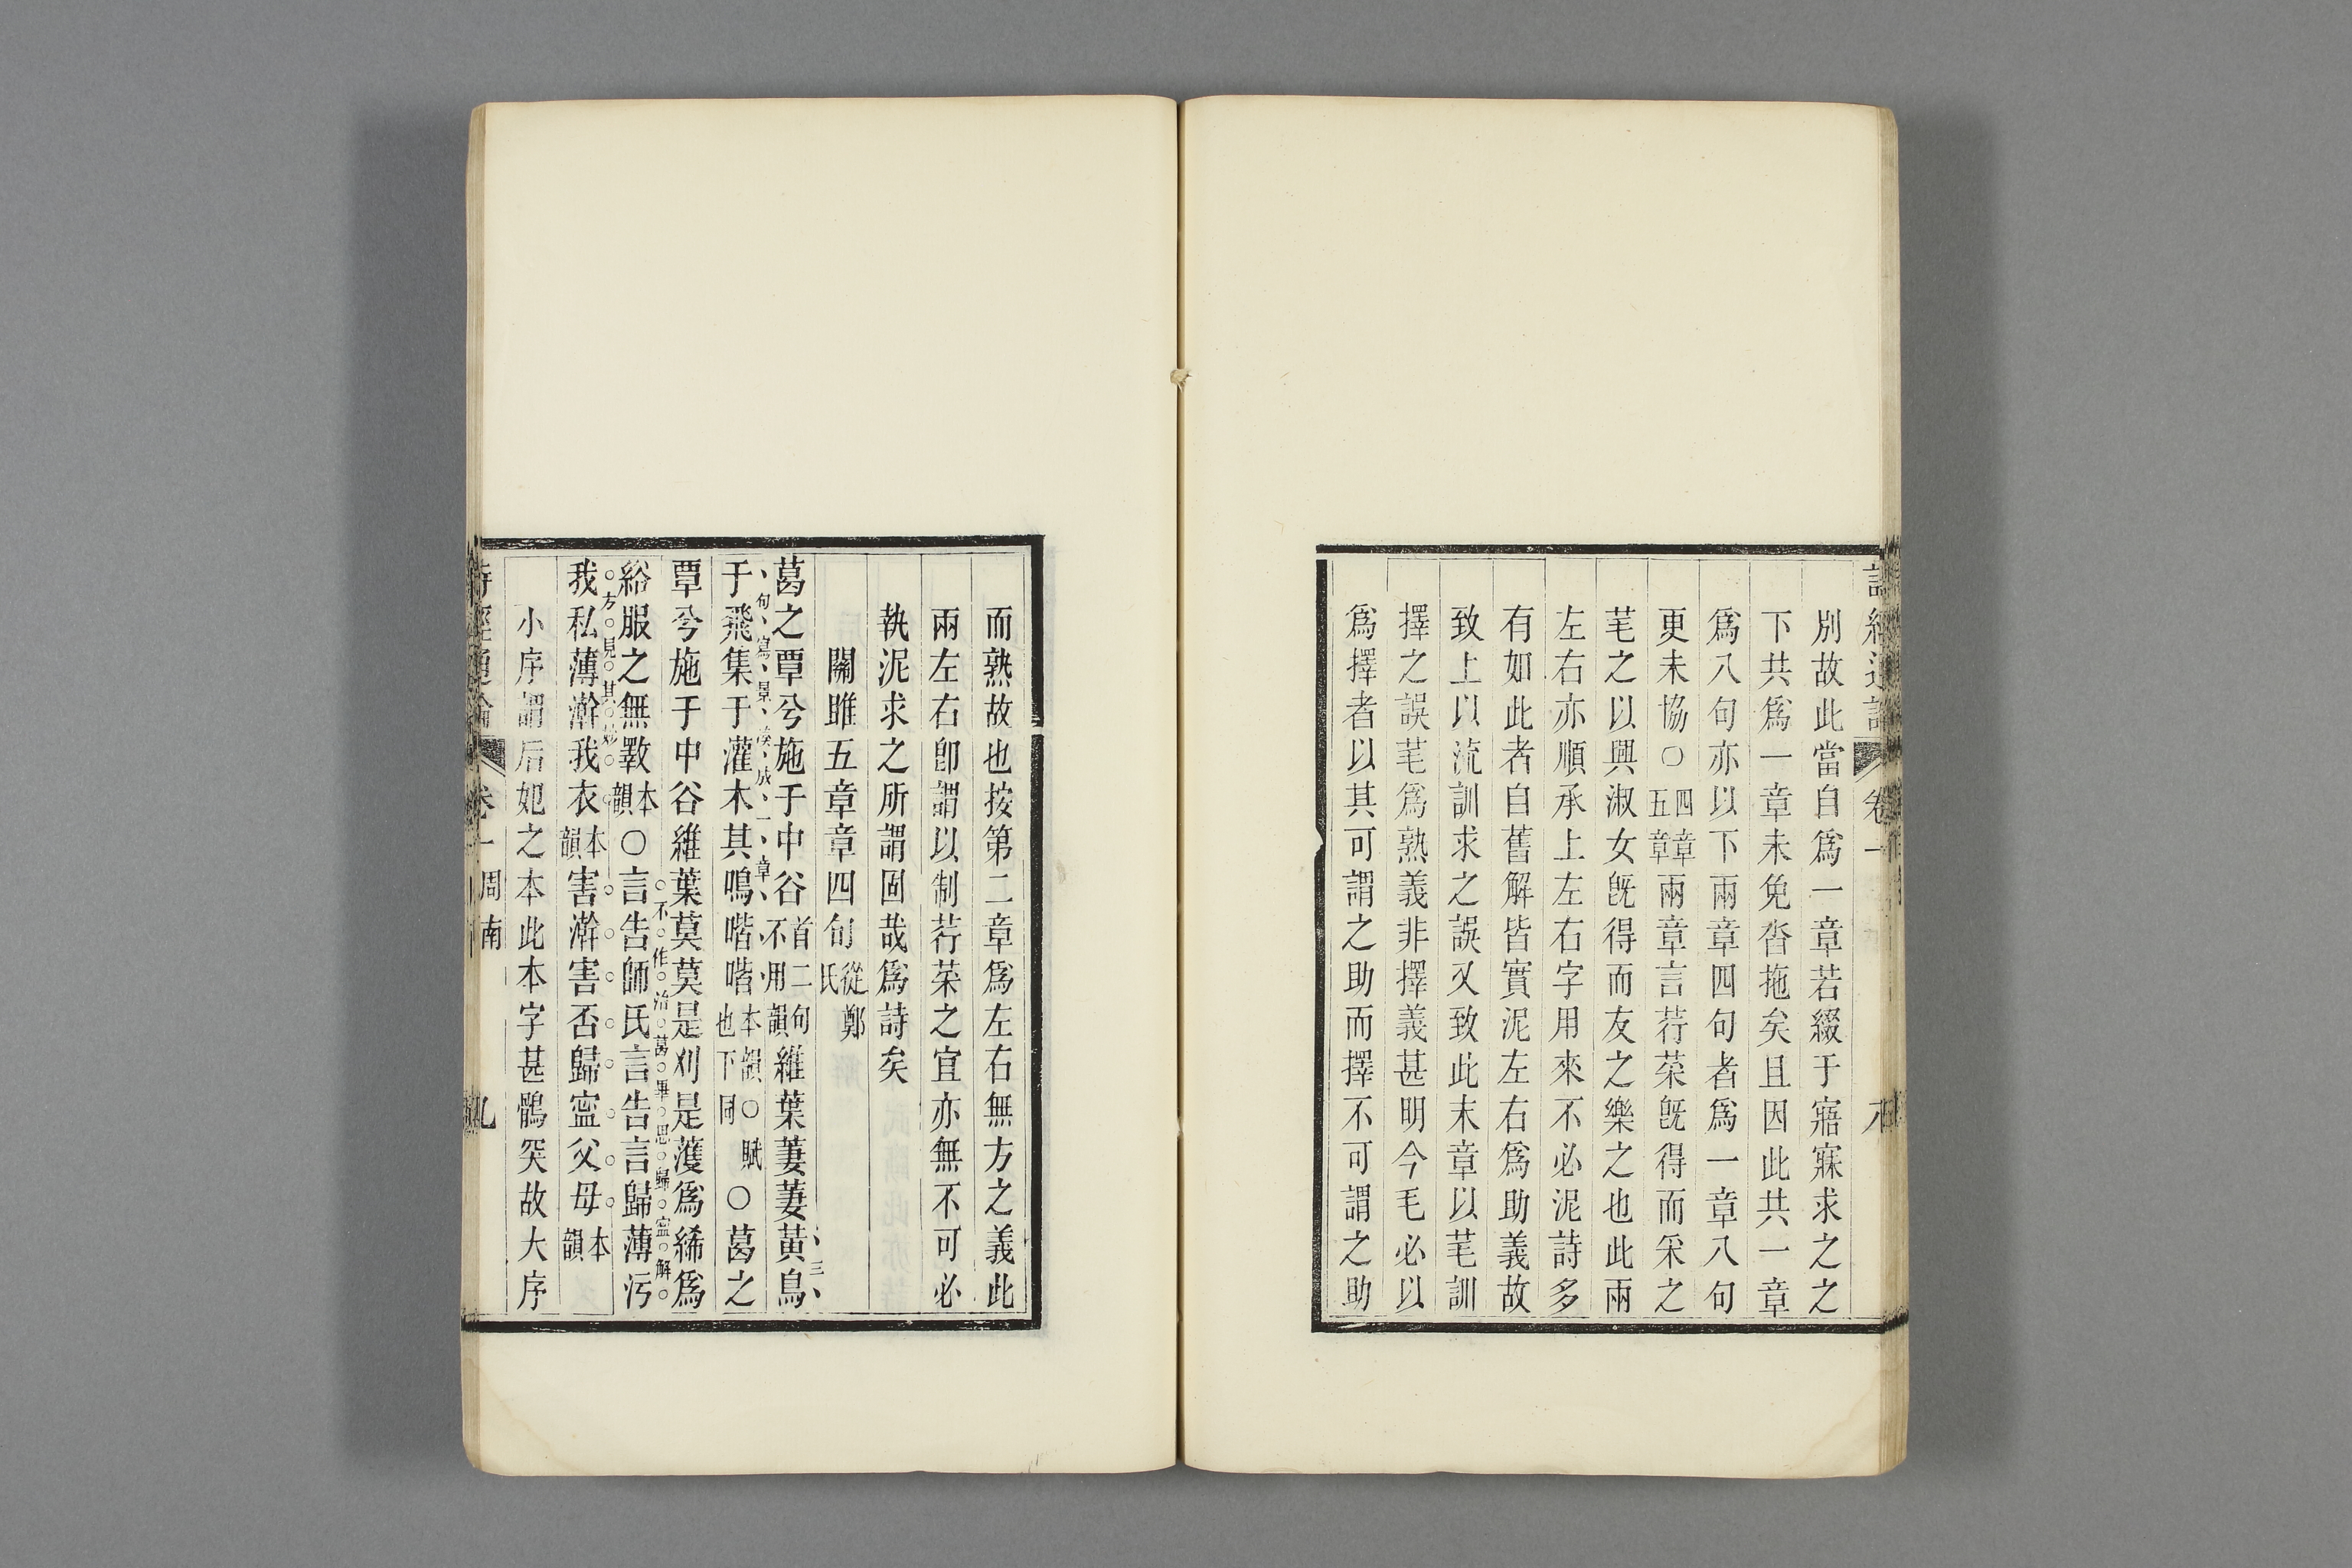 別故此當自爲一章若綴于寤寐求之之
下共爲一章未免沓拖矣且因此共一章
爲八句亦以下兩章四句者爲一章八句
更未協○四章五章兩章言荇菜旣得而采之
芼之以興淑女旣得而友之樂之也此兩
左右亦順承上左右字用來不必泥詩多
有如此者自舊解皆實泥左右爲助義故
致上以流訓求之誤又致此末章以芼訓
擇之誤芼爲熟義非擇義甚明今毛必以
爲擇者以其可謂之助而擇不可謂之助
而熟故也按第二章爲左右無方之義此
兩左右卽謂以制荇菜之宜亦無不可必
執泥求之所謂固哉爲詩矣
關雎五章章四句從鄭氏
葛之覃兮施于中谷首二句不用韻維葉萋萋黃鳥
三句寫景成一章
于飛集于灌木其鳴喈喈本韻也下同○賦○葛之
覃兮施于中谷維葉莫莫是刈是濩爲絺爲
不作治葛畢思歸寍解
綌服之無斁本韻○言告師氏言告言歸薄污
方見其妙
我私薄澣我衣本韻害澣害否歸寍父母本韻
小序謂后妃之本此本字甚鶻突故大序
卷一 周南 九